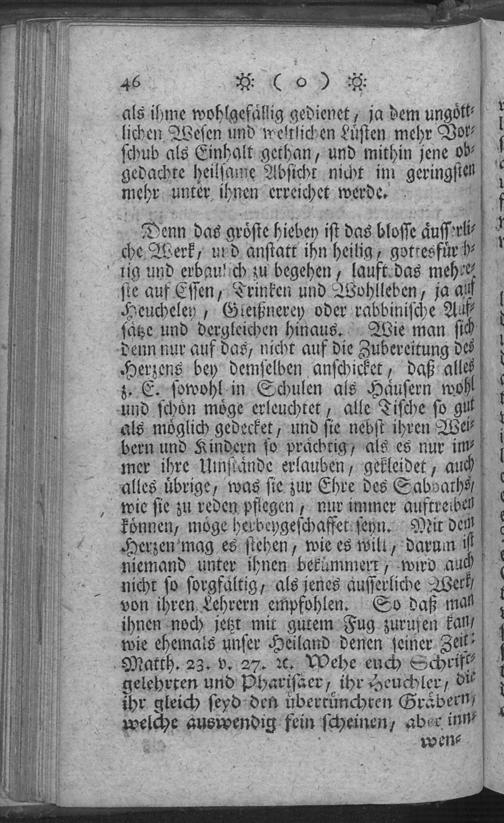 46 ( o )
als ihme wohlgefällig gedienet, ja dem ungött-
lichen Wesen und weltlichen Lüsten mehr Vor-
schub als Einhalt gethan, und mithin jene ob-
gedachte heilsame Absicht nicht im geringsten
mehr unter ihnen erreichet werde.
Denn das gröste hiebey ist das blosse äusserli-
che Werk, und anstatt ihn heilig, gottesfürch-
tig und erbaulich zu begehen, lauft das mehre-
ste auf Essen, Trinken und Wohlleben, ja auf
Heucheley, Gleißnerey oder rabbinische Auf-
sätze und dergleichen hinaus. Wie man sich
denn nur auf das, nicht auf die Zubereitung des
Herzens bey demselben anschicket, daß alles
z. E. sowohl in Schulen als Häusern wohl
und schön möge erleuchtet, alle Tische so gut
als möglich gedecket, und sie nebst ihren Wei-
bern und Kindern so prächtig, als es nur im-
mer ihre Umstände erlauben, gekleidet, auch
alles übrige, was sie zur Ehre des Sabbaths,
wie sie zu reden pflegen, nur immer auftreiben
können, möge herbeygeschaffet seyn. Mit dem
Herzen mag es stehen, wie es will, darum ist
niemand unter ihnen bekümmert, wird auch
nicht so sorgfältig, als jenes äusserliche Werk,
von ihren Lehrern empfohlen. So daß man
ihnen noch jetzt mit gutem Fug zurufen kan,
wie ehemals unser Heiland denen seiner Zeit:
Matth. 23. v. 27. ꝛc. Wehe euch Schrift-
gelehrten und Pharisäer, ihr Heuchler, die
ihr gleich seyd den übertünchten Gräbern,
welche auswendig fein scheinen, aber inn-
wen-